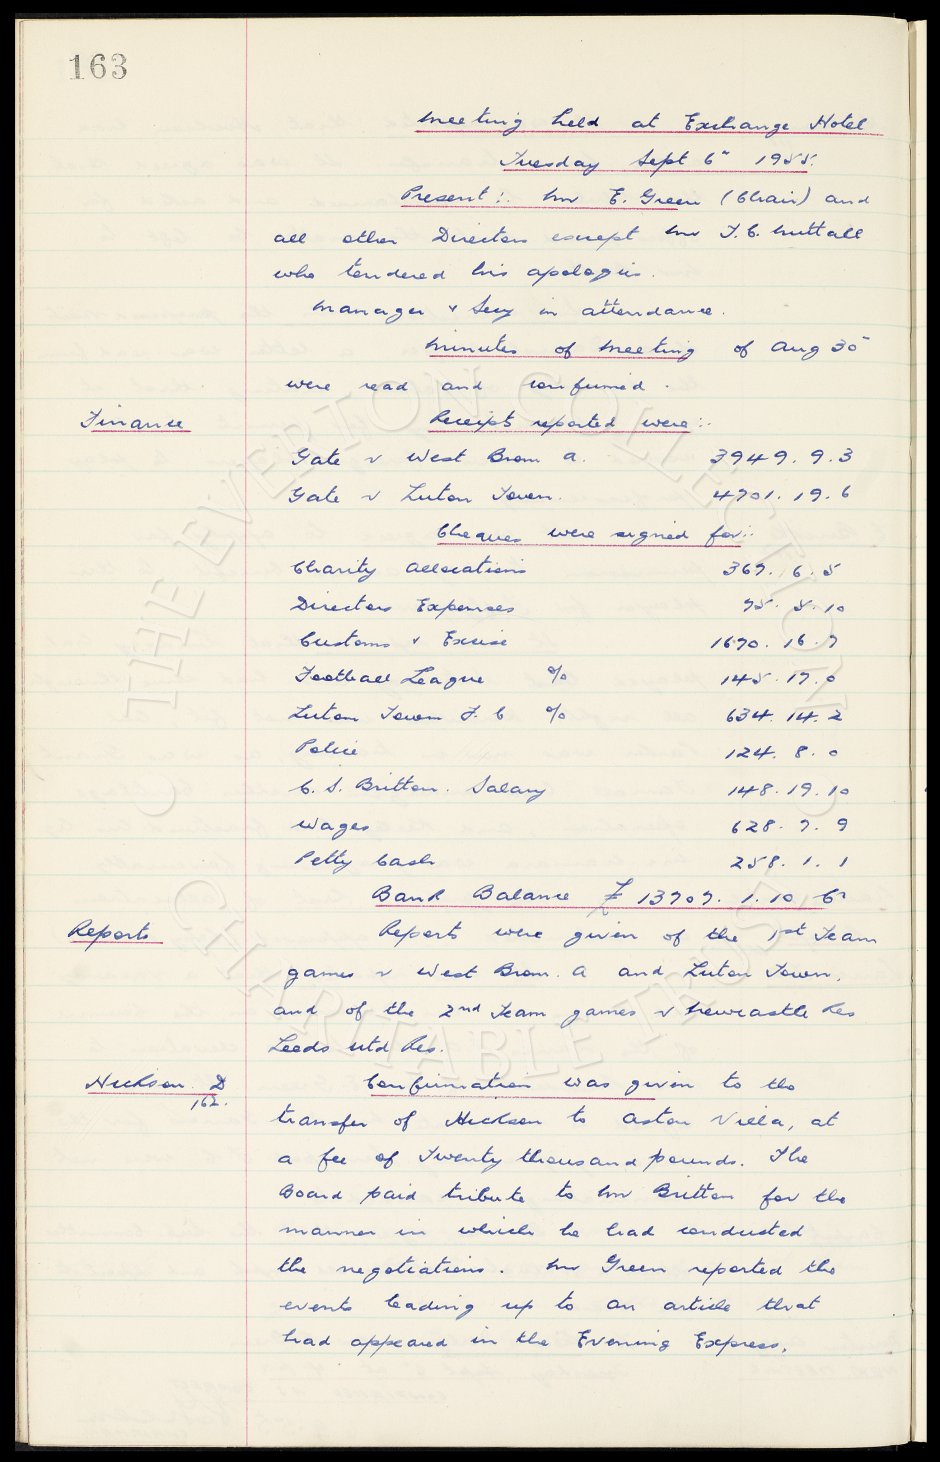 163
Meeting held at Exchange Hotel
Tuesday Sept 6th 1955.
Present:. Mr E. Green (Chair) and
all other Directors except Mr T.C. Nuttall
who tendered his apologies.
Manager & Secy in attendance.
Minutes of Meeting of Aug 30th
were read and confirmed.
Finance
Receipts reported were:.
Gate v West Brom A. 3949. 9. 3
Gate v Luton Town. 4701. 19. 6
Cheques were signed for:.
Charity Allocations 367. 6. 5
Directors Expenses 75. 5. 10
Customs & Excise 1670. 16. 7
Football League % 145. 17. 0
Luton Town F.C % 634. 14. 2
Police 124. 8. 0
C.S. Britton. Salary 148. 19. 10
Wages 628. 7. 9
Petty Cash 258. 1. 1
Bank Balance £13707. 1. 10 Cr
Reports
Reports were given of the 1st Team
games v West Brom. A and Luton Town,
and of the 2nd Team games v Newcastle Res
Leeds Utd Res.
Hickson. D
162.
Confirmation was given to the
transfer of Hickson to Aston Villa, at
a fee of Twenty thousand pounds. The
Board paid tribute to Mr Britton for the
manner in which he had conducted
the negotiations. Mr Green reported the
events leading up to an article that
had appeared in the Evening Express.
© THE EVERTON COLLECTION
CHARITABLE TRUST